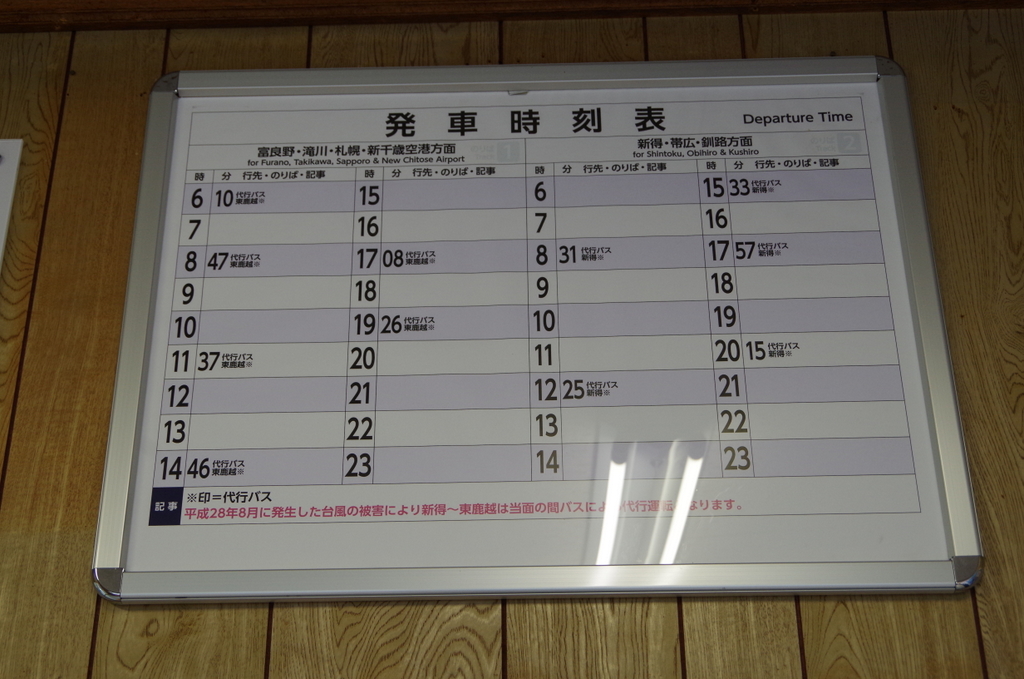 発車時刻表 Departure Time
富良野・滝川・札幌・新千歳空港方面
for Furano, Takikawa, Sapporo & New Chitose Airport
1
新得・帯広・釧路方面
for Shintoku, Obihiro & Kushiro
2
時 分 行先・のりば・記事 時 分 行先・のりば・記事 時 分 行先・のりば・記事 時 分 行先・のりば・記事
6 10 代行バス 東鹿越※ 15 6 15 33 代行バス 新得※
7 16 7 16
8 47 代行バス 東鹿越※ 17 08 代行バス 東鹿越※ 8 31 代行バス 新得※ 17 57 代行バス 新得※
9 18 9 18
10 19 26 代行バス 東鹿越※ 10 19
11 37 代行バス 東鹿越※ 20 11 20 15 代行バス 新得※
12 21 12 25 代行バス 新得※ 21
13 22 13 22
14 46 代行バス 東鹿越※ 23 14 23
記事 ※印=代行バス
平成28年8月に発生した台風の被害により新得~東鹿越は当面の間バスによ 代行運転 なります。